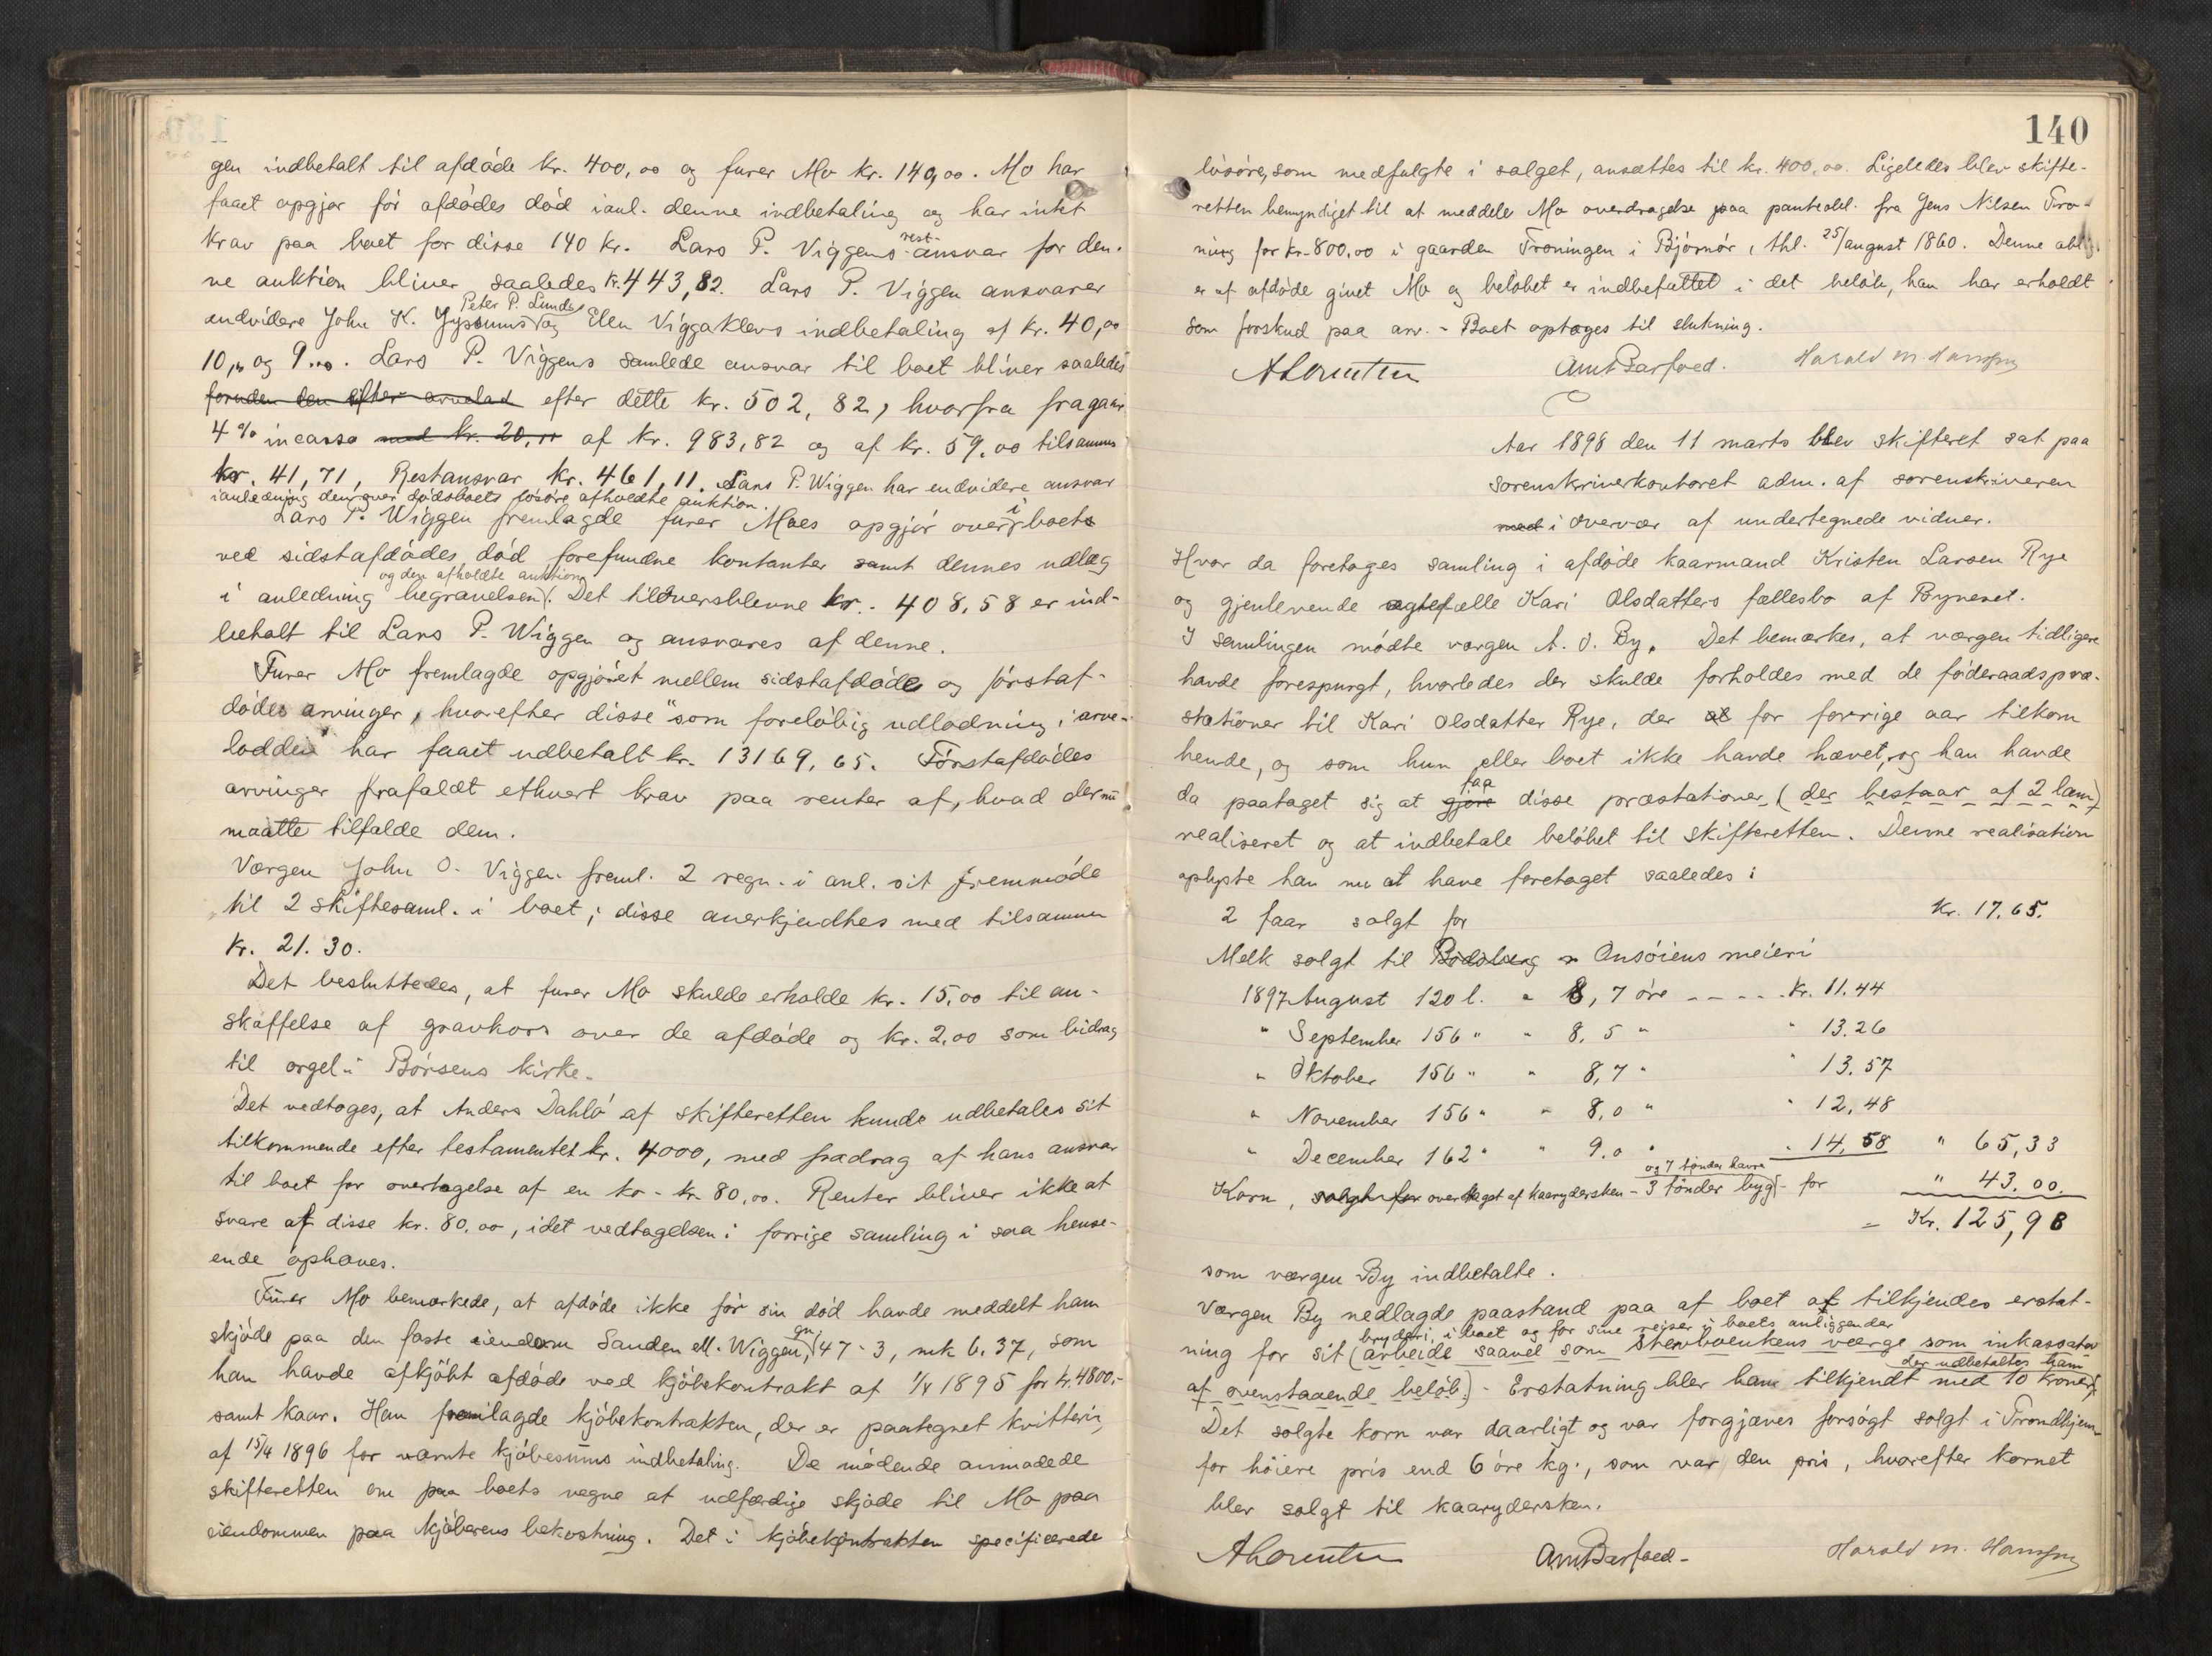 gen indbetalt til afdøde kr. 400,00 og furer Mo kr. 140,00. Mo har
faaet opgjør før afdødes død i anl. denne indbetaling og har intet
krav paa boet for disse 140 kr. Lars P. Viggens rest-ansvar for den-
ne auktion bliver saaledes kr. 443,82. Lars P. Viggen ansvarer
Peter P. Lunds
endvidere John K. og Elen Viggaklevs indbetaling af kr. 40,00
10,00 og 9.00. Lars P. Viggens samlede ansvar til boet bliver saaledes
foruden den efter efter dette kr. 502,82, hvorfra fragaar
4% incasso med kr. 20,00 af kr. 983,82 og af kr. 59,00 tilsammen
kr. 41,71, Restansvar kr. 461,11. Lars P. Wiggen har endvidere ansvar
i anledning den over dødsboets løsøre afholdte auktion.
Lars P. Wiggen fremlagde furer Moes opgjør over i boet
ved sidstafdødes død forefundne kontanter samt dennes udlæg
og den afholdte auktion
i anledning begravelsen. Det tiloversblevne kr. 408,58 er ind-
betalt til Lars P. Wiggen og ansvares af denne.
Furer Mo fremlagde opgjøret mellem sidstafdøde og førstaf-
dødes arvinger, hvorefter disse "som foreløbig udlodning i arve-
lodden" har faaet udbetalt kr. 13169,65. Førstafdødes
arvinger frafaldt ethvert krav paa renter af, hvad der nu
maatte tilfalde dem.
Værgen John O. Viggen freml. 2 regn. i anl. sit fremmøde
til 2 skiftesaml. i boet; disse anerkjendtes med tilsammen
kr. 21.30.
Det besluttedes, at furer Mo skulde erholde kr. 15,00 til an-
skaffelse af gravkors over de afdøde og kr. 2,00 som bidrag
til orgel i Børsens kirke.
Det vedtoges, at Anders Dahlø af skifteretten kunde udbetales sit
tilkommende efter testamentet kr. 4000, med fradrag af hans ansvar
til boet for overtagelse af en ko - kr. 80,00. Renter bliver ikke at
svare af disse kr. 80,00, idet vedtagelsen i forrige samling i saa hense-
ende ophæves.
Furer Mo bemærkede, at afdøde ikke før sin død havde meddelt ham
skjøde paa den faste eiendom Sanden ell. Wiggen, gn. 47-3, mk 6.37, som
han havde afkjøbt afdøde ved kjøbekontrakt af 1/5 1895 for kr. 4800.-
samt kaar. Han fremlagde kjøbekontrakten, der er paategnet kvittering
af 15/4 1896 for nævnte kjøbesums indbetaling. De mødende anmodede
skifteretten om paa boets vegne at udfærdige skjøde til Mo paa
eiendommen paa kjøberens bekostning. Det i kjøbekontrakten specificerede
140
løsøre, som medfulgte i salget, ansættes til kr. 400,00. Ligeledes blev skifte-
retten bemyndiget til at meddele Mo overdragelse paa panteobl. fra Jens Nilsen Tro-
ning for kr. 800,00 i gaarden Troningen i Bjørnør, thl. 25/august 1860. Denne obl.
er af afdøde givet Mo og beløbet er indbefattet i det beløb, han har erholdt
som forskud paa arv. - Boet optages til slutning.
ALorentzen Am Barfoed. Harald M. Hansen
Aar 1898 den 11 marts blev skifteret sat paa
sorenskriverkontoret adm. af sorenskriveren
med i overvær af undertegnede vidner.
Hvor da foretoges samling i afdøde kaarmand Kristen Larsen Rye
og gjenlevende ægtefælle Kari Olsdatters fællesbo af Bynesset.
I samlingen mødte værgen A. O. By. Det bemærkes, at værgen tidligere
havde forespurgt, hvorledes der skulde forholdes med de føderaadspræ-
stationer til Kari Olsdatter Rye, der at for forrige aar tilkom
hende, og som hun eller boet ikke havde hævet, og han havde
da paataget sig at gjøre faa disse præstationer, (der bestaar af 2 lam)
realiseret og at indbetale beløbet til skifteretten. Denne realisation
oplyste han nu at have foretaget saaledes:
2 faar solgt for kr. 17,65.
Melk solgt til Onsøiens meieri
1897 August 120 l. " 8,7 øre - - - - - kr. 11.44
" September 156 " " 8,5 " " 13.26
" Oktober 156 " " 8,7 " " 13.57
" November 156 " " 8,0 " " 12,48
" December 162 " " 9.0 " " 14,58 " 65,33
og 7 tønder havre
Korn, solgt for overtaget af kaarydersken - 3 tønder byg - for " 43.00.
= Kr. 125,98
som værgen By indbetalte.
Værgen By nedlagde paastand paa af boet at tilkjendes erstat-
bryderi i boet og for sine reiser i boets anliggender
ning for sit (arbeide saavel som stervboenkens værge som inkassator
der udbetaltes ham
af ovenstaaende beløb). - Erstatning blev ham tilkjendt med 10 kroner.
Det solgte korn var daarligt og var forgjæves forsøgt solgt i Trondhjem
for høiere pris end 6 øre kg., som var den pris, hvorefter kornet
blev solgt til kaarydersken.
ALorentzen Am Barfoed - Harald M. Hansen